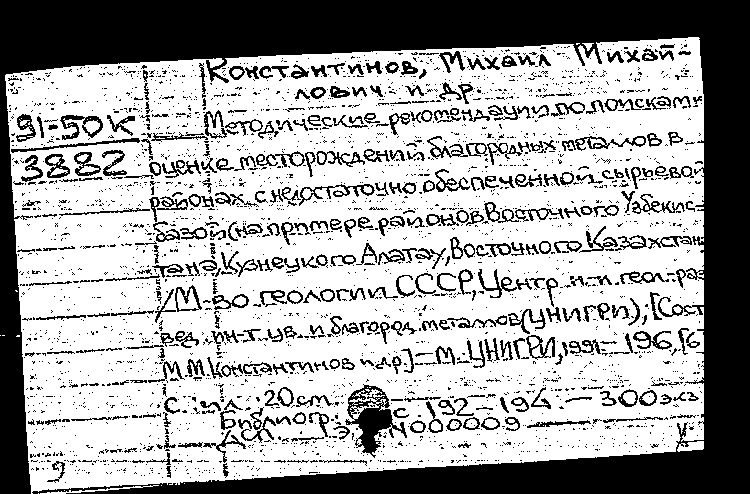 Константинов, Михаил Михай-
лович и др.
91-50К
3882
Методические рекомендации по поискам и
оценке месторождений благородных металлов в
районах с недостаточно обеспеченной сырьевой
базой (на примере районов Восточного Узбекис-
тана, Кузнецкого Алатау, Восточного Казахстан
/М-во геологии СССР, Центр. н.-и. геол.-раз
вед. ин-т цв. и благород. металлов (ЦНИГРИ); [Сост
М.М. Константинов и др.] - М. ЦНИГРИ, 1991 - 196, [6
с. : ил. : 20 см.
Библиогр. с. 192-194. - 300 экз
ДСП 1 э. Ч000009